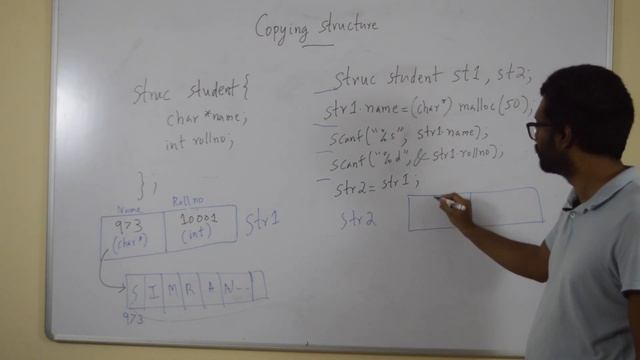 Copying structure
struc student {
char *name;
int rollno;
};
Struc student st1, st2;
str1.name=(char*) malloc(50);
scanf("%s", str1.name);
scanf("%d", & str1.rollno);
str2 = str1;
Name Rollno
973 10001
(char*) (int)
str1
S I M R A N--
973
str2